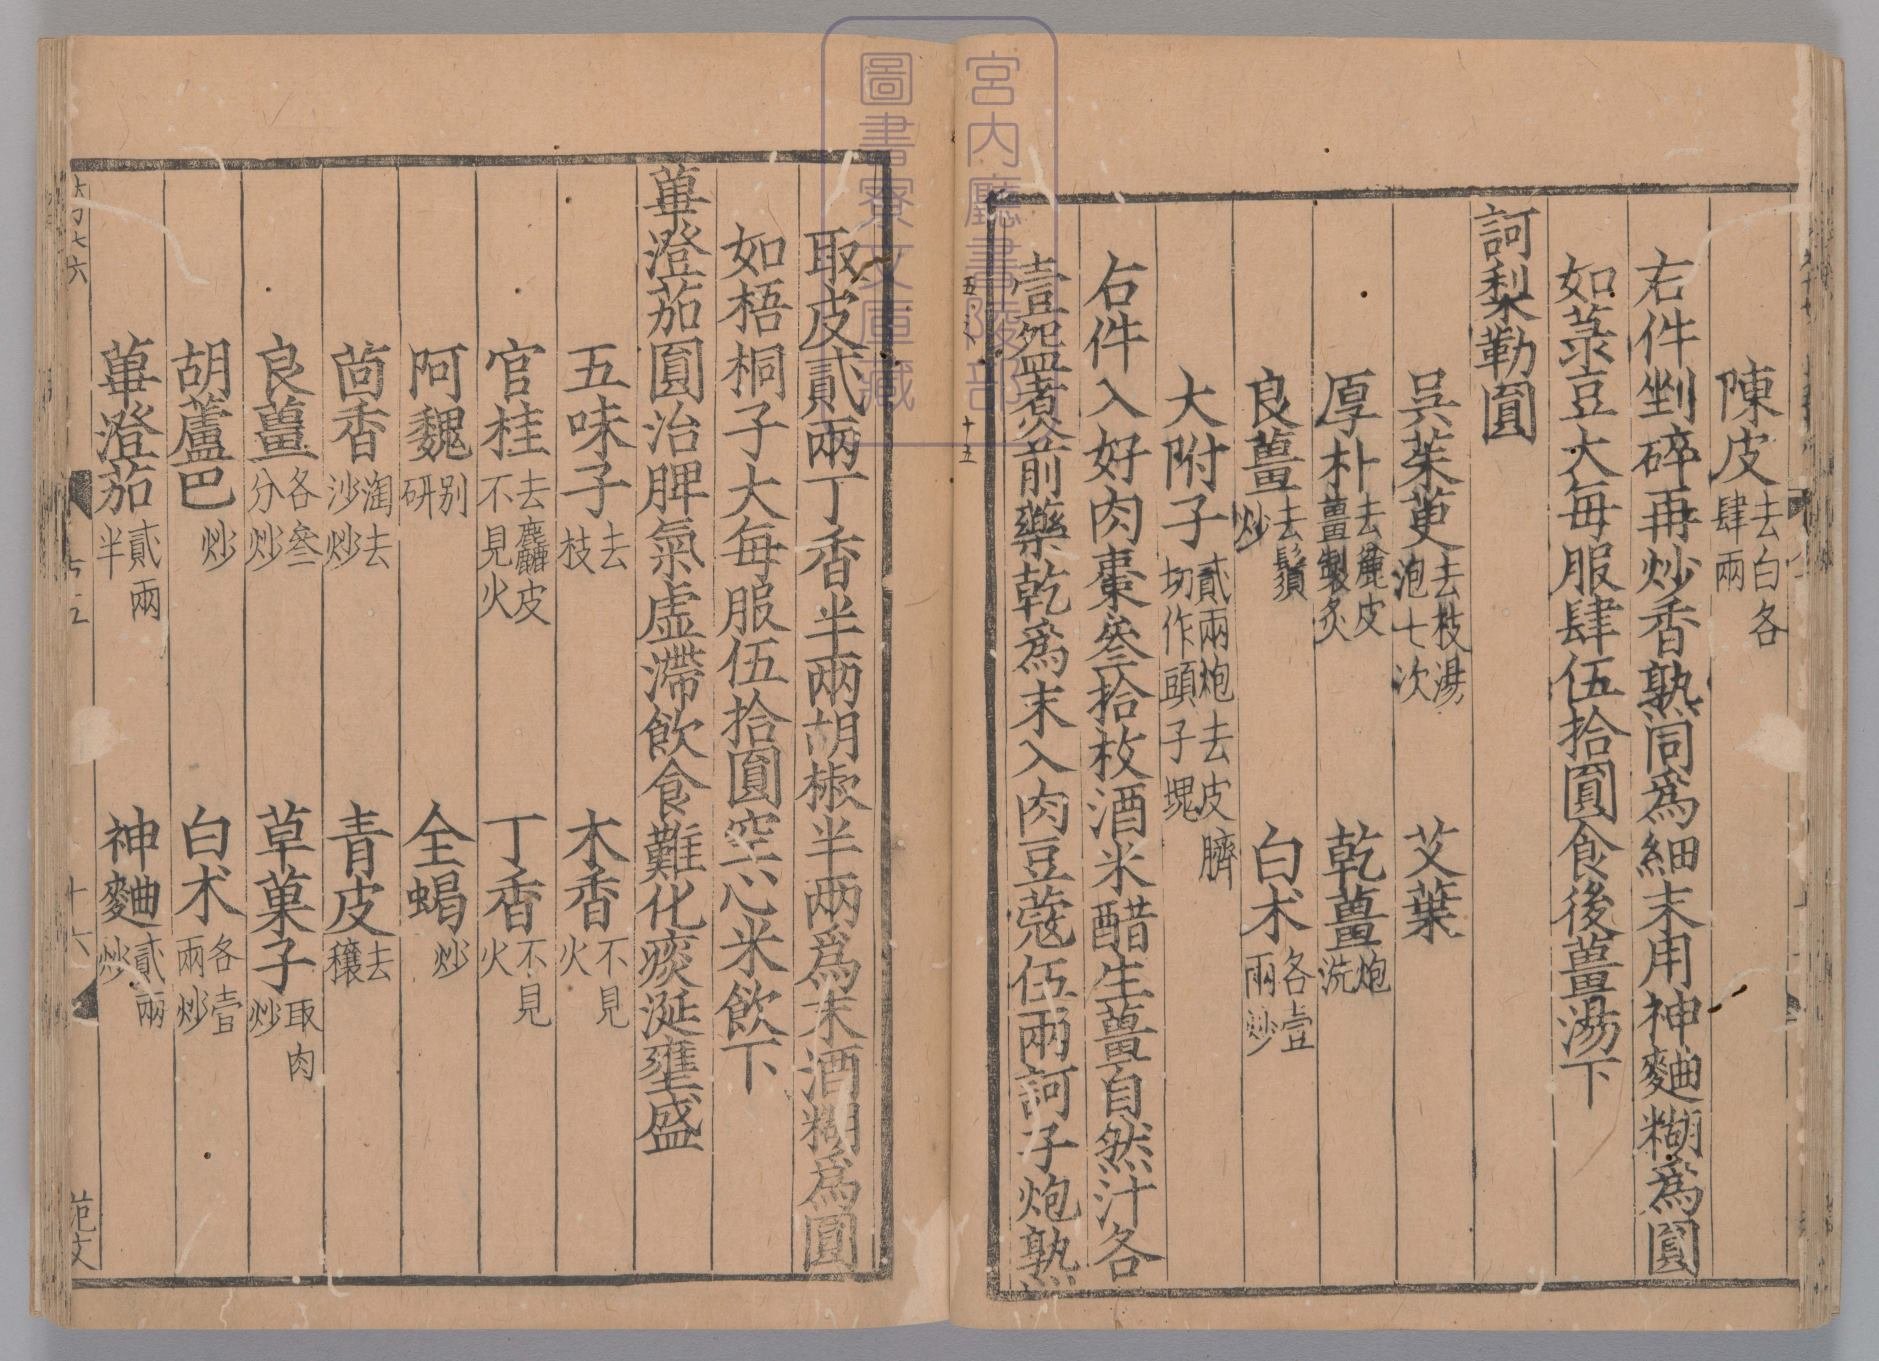 陳皮去白各肆兩
右件剉碎再炒香熟同爲細末用神麯糊爲圓
如菉豆大每服肆伍拾圓食後薑湯下
訶梨勒圓
吳茱萸去枝湯泡七次 艾葉
厚朴去麄皮薑製炙 乾薑炮洗
良薑去鬚炒 白术各壹兩炒
大附子貳兩炮去皮臍切作頭子塊
右件入好肉棗叄拾枚酒米醋生薑自然汁各
壹盌煑前藥乾爲末入肉豆蔻伍兩訶子炮熟
取皮貳兩丁香半兩胡椒半兩爲末酒糊爲圓
如梧桐子大每服伍拾圓空心米飲下
蓽澄茄圓治脾氣虛滯飲食難化痰涎壅盛
五味子去枝 木香不見火
官桂去麤皮不見火 丁香不見火
阿魏別研 全蝎炒
茴香淘去沙炒 青皮去穰
良薑各叄分炒 草菓子取肉炒
胡蘆巴炒 白术各壹兩炒
蓽澄茄貳兩半 神麯貳兩炒
十六
范文
十五
宮内廳書陵部
圖書寮文庫藏